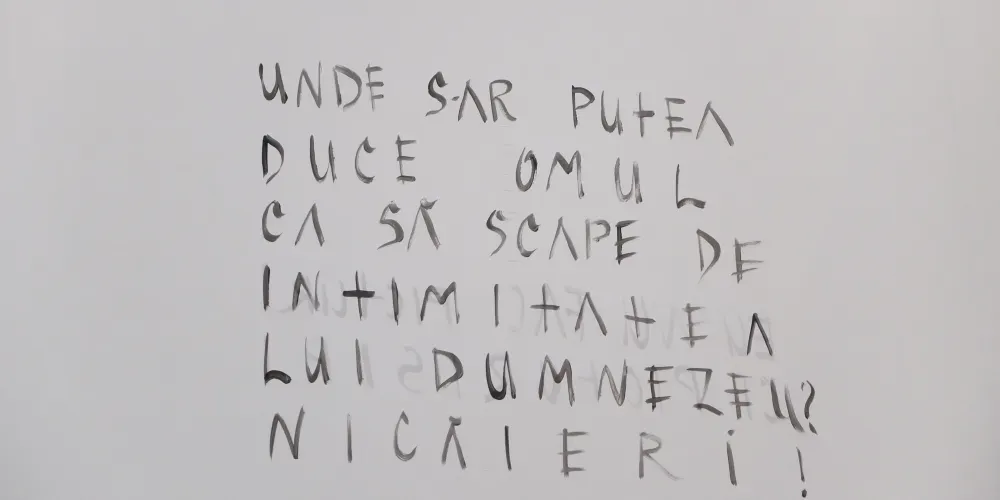 UNDE S-AR PUTEA
DUCE OMUL
CA SĂ SCAPE DE
INTIMITATEA
LUI DUMNEZEU?
NICĂIERI!